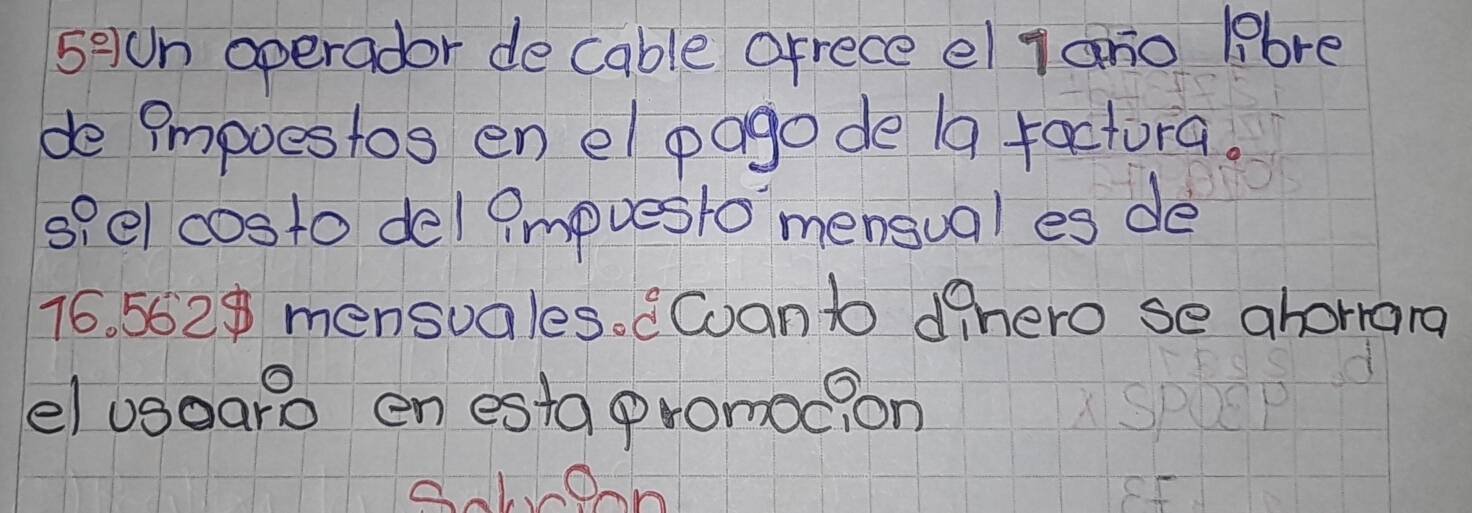 5º) Un operador de cable ofrece el 1 año libre
de impuestos en el pago de la factura.
si el costo del impuesto mensual es de
16.562$ mensuales. ¿Cuanto dinero se ahorrara
el usuario en esta promocion
Solucion